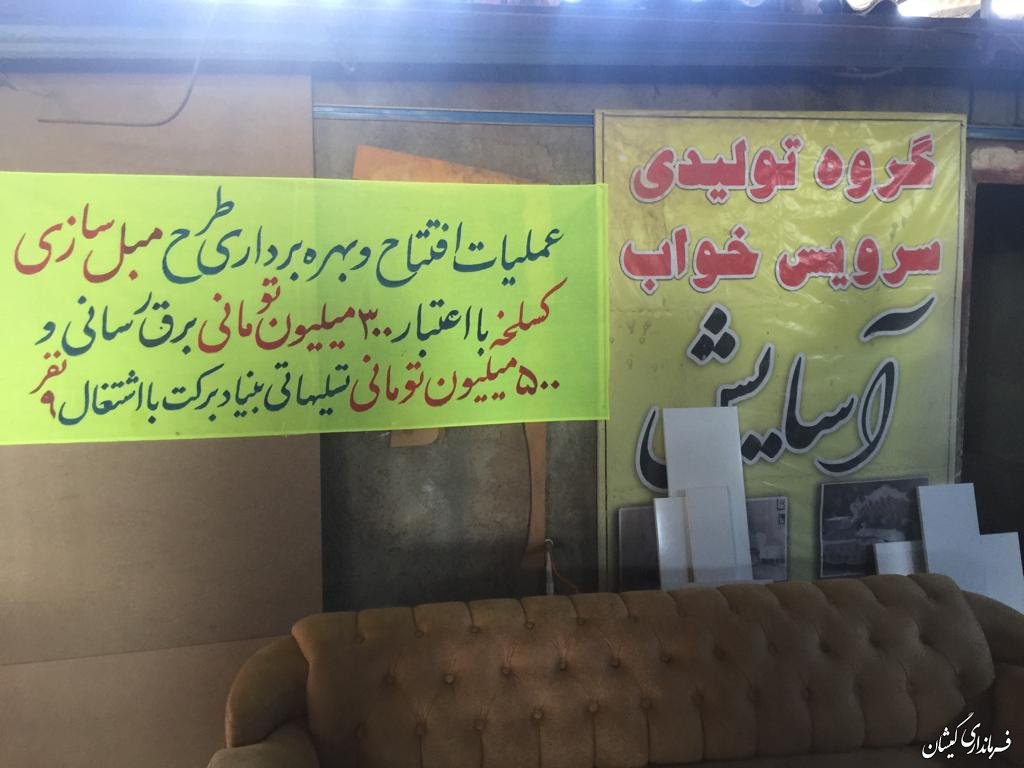 عملیات افتتاح و بهره برداری طرح مبل سازی
کسلخه با اعتبار ۳۰۰ میلیون تومانی برق رسانی و
۵۰۰ میلیون تومانی تسیلهاتی بنیاد برکت با اشتغال ۹ نفر
گروه تولیدی
سرویس خواب
آسایش
فرمانداری گمیشان